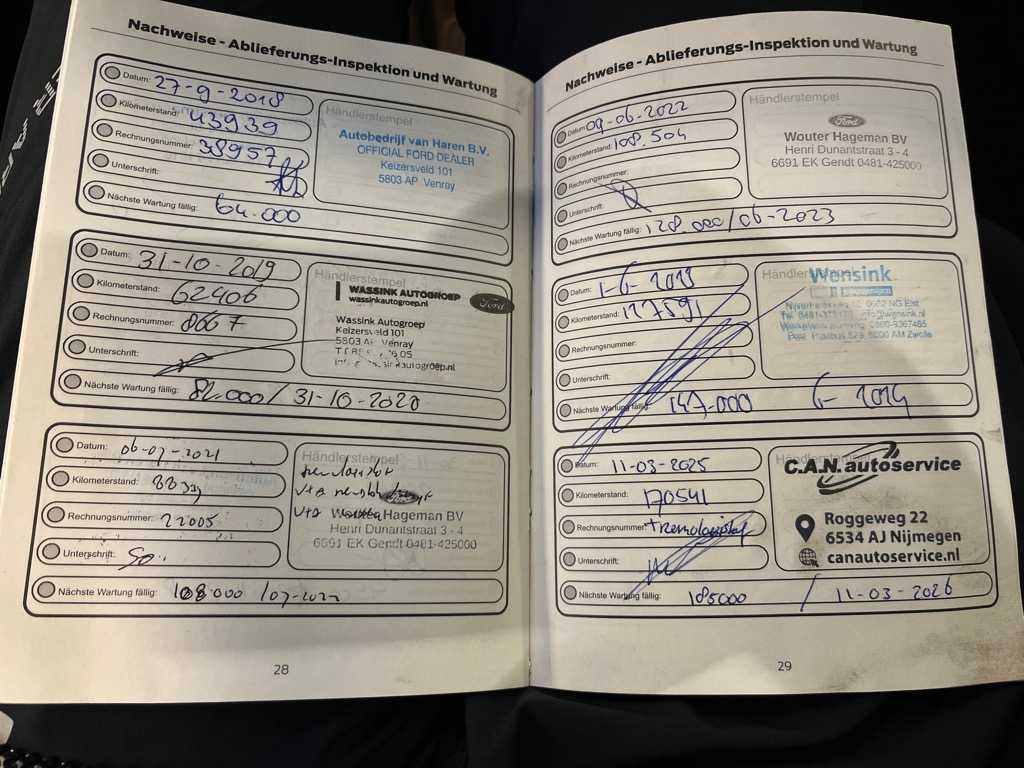 Nachweise - Ablieferungs-Inspektion und Wartung
Datum: 27-9-2018
Kilometerstand: 43939
Rechnungsnummer: 38957
Unterschrift:
Nächste Wartung fällig: 64.000
Händlerstempel
Autobedrijf van Haren B.V.
OFFICIAL FORD DEALER
Keizersveld 101
5803 AP Venray
Datum: 31-10-2019
Kilometerstand: 62406
Rechnungsnummer: 8667
Unterschrift:
Nächste Wartung fällig: 82.000 / 31-10-2020
Händlerstempel
WASSINK AUTOGROEP
wassinkautogroep.nl
Ford
Wassink Autogroep
Keizersveld 101
5803 AP Venray
Datum: 06-07-2021
Kilometerstand:
Rechnungsnummer: 22005
Unterschrift:
Nächste Wartung fällig: 108.000 / 07-2022
Händlerstempel
Ford
Hageman BV
Henri Dunantstraat 3 - 4
6691 EK Gendt 0481-425000
28
Nachweise - Ablieferungs-Inspektion und Wartung
Datum: 09-06-2022
Kilometerstand: 108.504
Rechnungsnummer:
Unterschrift:
Nächste Wartung fällig: 128.000/06-2023
Händlerstempel
Ford
Wouter Hageman BV
Henri Dunantstraat 3 - 4
6691 EK Gendt 0481-425000
Datum:
Kilometerstand: 127591
Rechnungsnummer:
Unterschrift:
Nächste Wartung fällig: 147.000 6-2024
Händlerstempel
Wensink
Datum: 11-03-2025
Kilometerstand: 170541
Rechnungsnummer:
Unterschrift:
Nächste Wartung fällig: 185000 / 11-03-2026
Händlerstempel
C.A.N. autoservice
Roggeweg 22
6534 AJ Nijmegen
canautoservice.nl
29